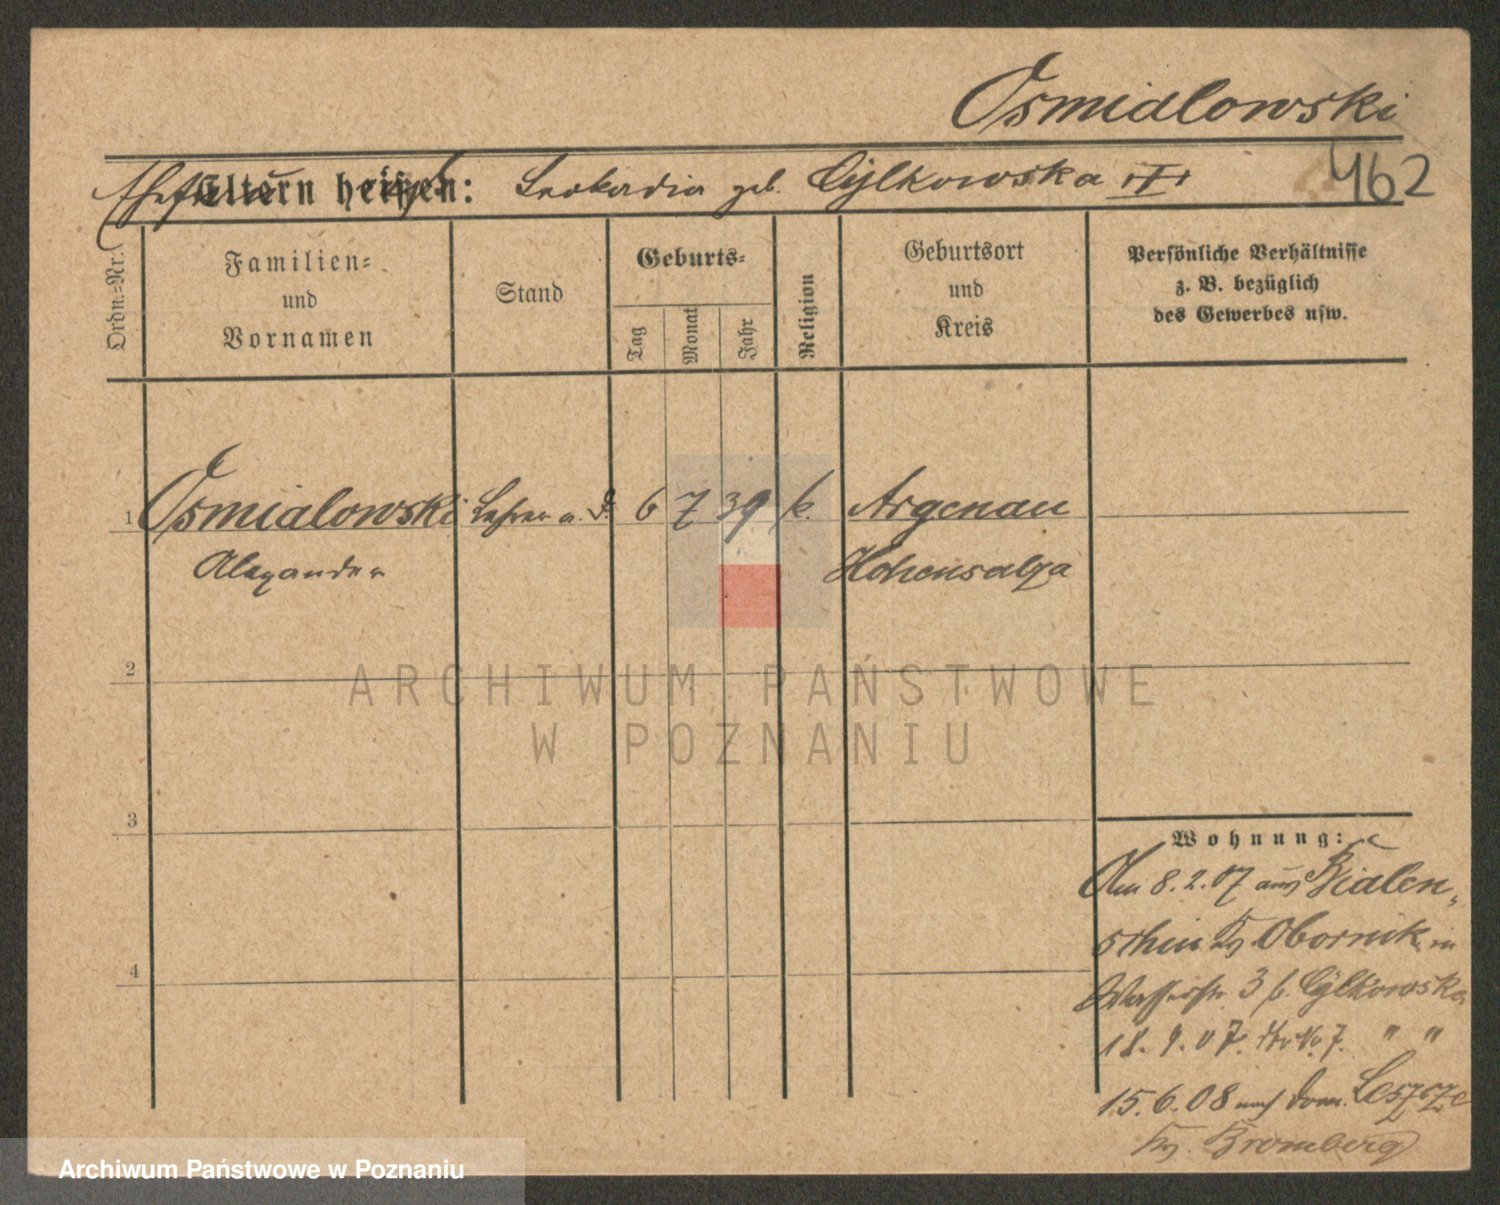 Osmialowski
462
Ehefrau Eltern heißen: Leokardia geb. Cylkowska
Ordn.-Nr.
Familien-
und
Vornamen
Stand
Geburts-
Tag
Monat
Jahr
Religion
Geburtsort
und
Kreis
Persönliche Verhältnisse
z. B. bezüglich
des Gewerbes usw.
1 Osmialowski Lehrer a. D. 6 7 39 k. Argenau
Alexander Hohensalza
2
3
4
Wohnung:
Am 8.2.07 aus Bialen-
schin Kr. Obornik in
Wasserstr. 3 b. Cylkowska
18.9.07. " "
15.6.08 nach Dom. Leszcze
Kr. Bromberg
ARCHIWUM PAŃSTWOWE
W POZNANIU
Archiwum Państwowe w Poznaniu